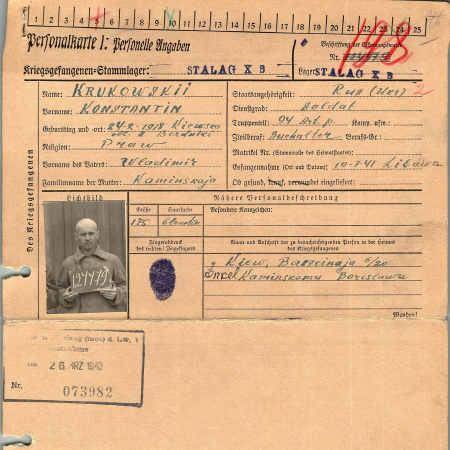 1 2 3 4 5 6 7 8 9 10 11 12 13 14 15 16 17 18 19 20 21 22 23 24 25
Personalkarte I: Personelle Angaben
Beschriftung der Erkennungsmarke
Nr. 124479
198
Kriegsgefangenen-Stammlager: STALAG X B
Lager: STALAG X B
Des Kriegsgefangenen
Name: KRUKOWSKII
Vorname: KONSTANTIN
Geburtstag und -ort: 24.2.1918 Kiewsko
Religion: Praw
Vorname des Vaters: Wladimir
Familienname der Mutter: Kaminskaja
Staatsangehörigkeit: Rus (Ukr) 2
Dienstgrad: Soldat
Truppenteil: 94 Art. p. Komp. usw.:
Zivilberuf: Buchalter Berufs-Gr.:
Matrikel Nr. (Stammrolle des Heimatstaates):
Gefangennahme (Ort und Datum): 10-7-41 Libawa
Ob gesund, krank, verwundet eingeliefert:
Lichtbild
Nähere Personalbeschreibung
Größe
Haarfarbe
Besondere Kennzeichen:
175
blondin
Fingerabdruck
des rechten! Zeigefingers
Name und Anschrift der zu benachrichtigenden Person in der Heimat
des Kriegsgefangenen
124479
g Kiew, Basseinaja 5/20
Onkel Kaminskomu Borislawu
Wenden!
26. MRZ 1943
Nr. 073982